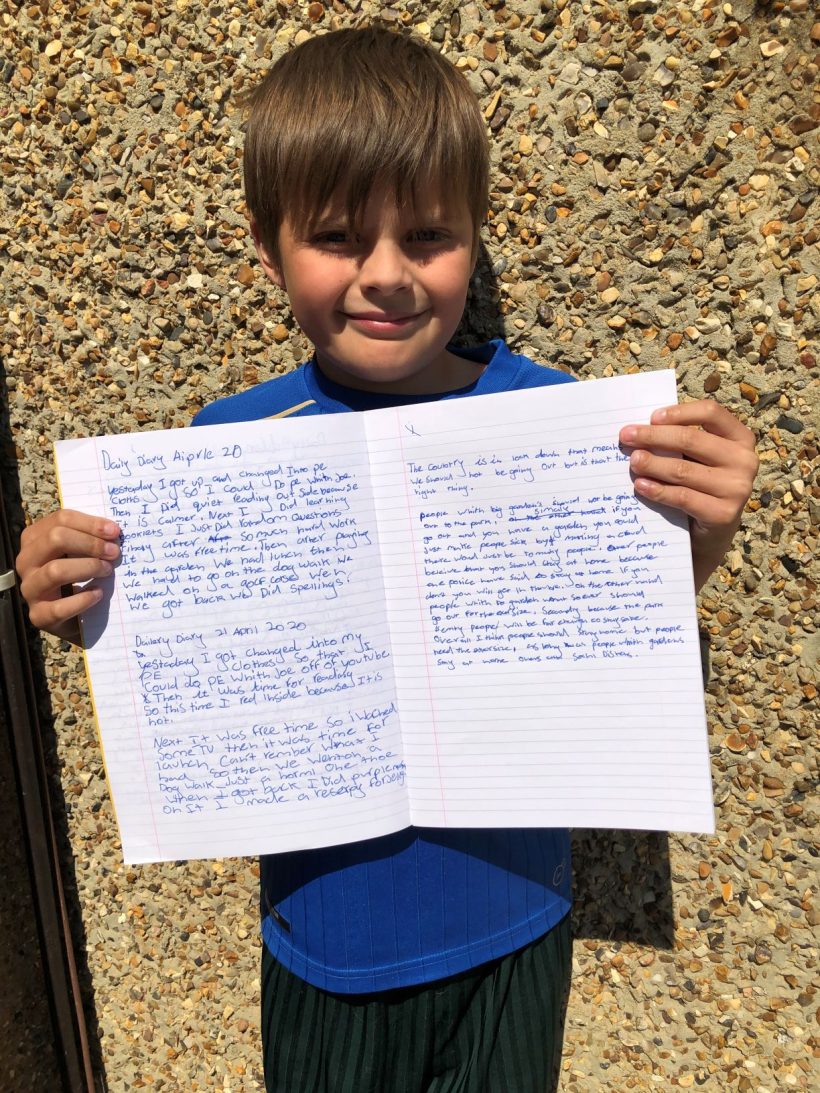 Daily Diary Aiprle 20
yesterday I got up and changed Into pe
cloths so I could Do pe whith Joe.
Then I Did quiet reading out side because
It is calmer. Next I Did learning
booklets I Just Did Random Questions
fihaly after so much hard work
It was free time. Then after playing
In the garden We had lunch then
we had to go on the dog walk We
Walked on a golf corse When
We got back we Did spellings!
Dailary Diary 21 April 2020
Yestaday I got changed into my
PE clothes so that I
Could do PE Whith Joe off of youtube
& Then it was time for reading
So this time I red inside because It is
hot.
Next It was free time so i wached
some TV then it was time for
launch Can't rember What I
had so then we went on a
Dog walk Just a norml One
When I got back I Did purple
on It I made a reserpy for
The Country is in lock down that means
We should not be going Out but is that the
right thing.
people whith big gardens should not be going
out to the park, simaly if you
go out and you a garden you could
just make people sick by
there would just be To many people. Other people
belive that you should stay at home because
the police have said to stay at home if you
dont you will get in trubble. On the other hand
people whith no garden what so ever should
go out for the exersize. Secondly because the park
is emty people will be far enough to stay safe.
Overall I think people should stay home but people
need the exersize, as long as people whith gardens
stay at home others and sochl Distens.